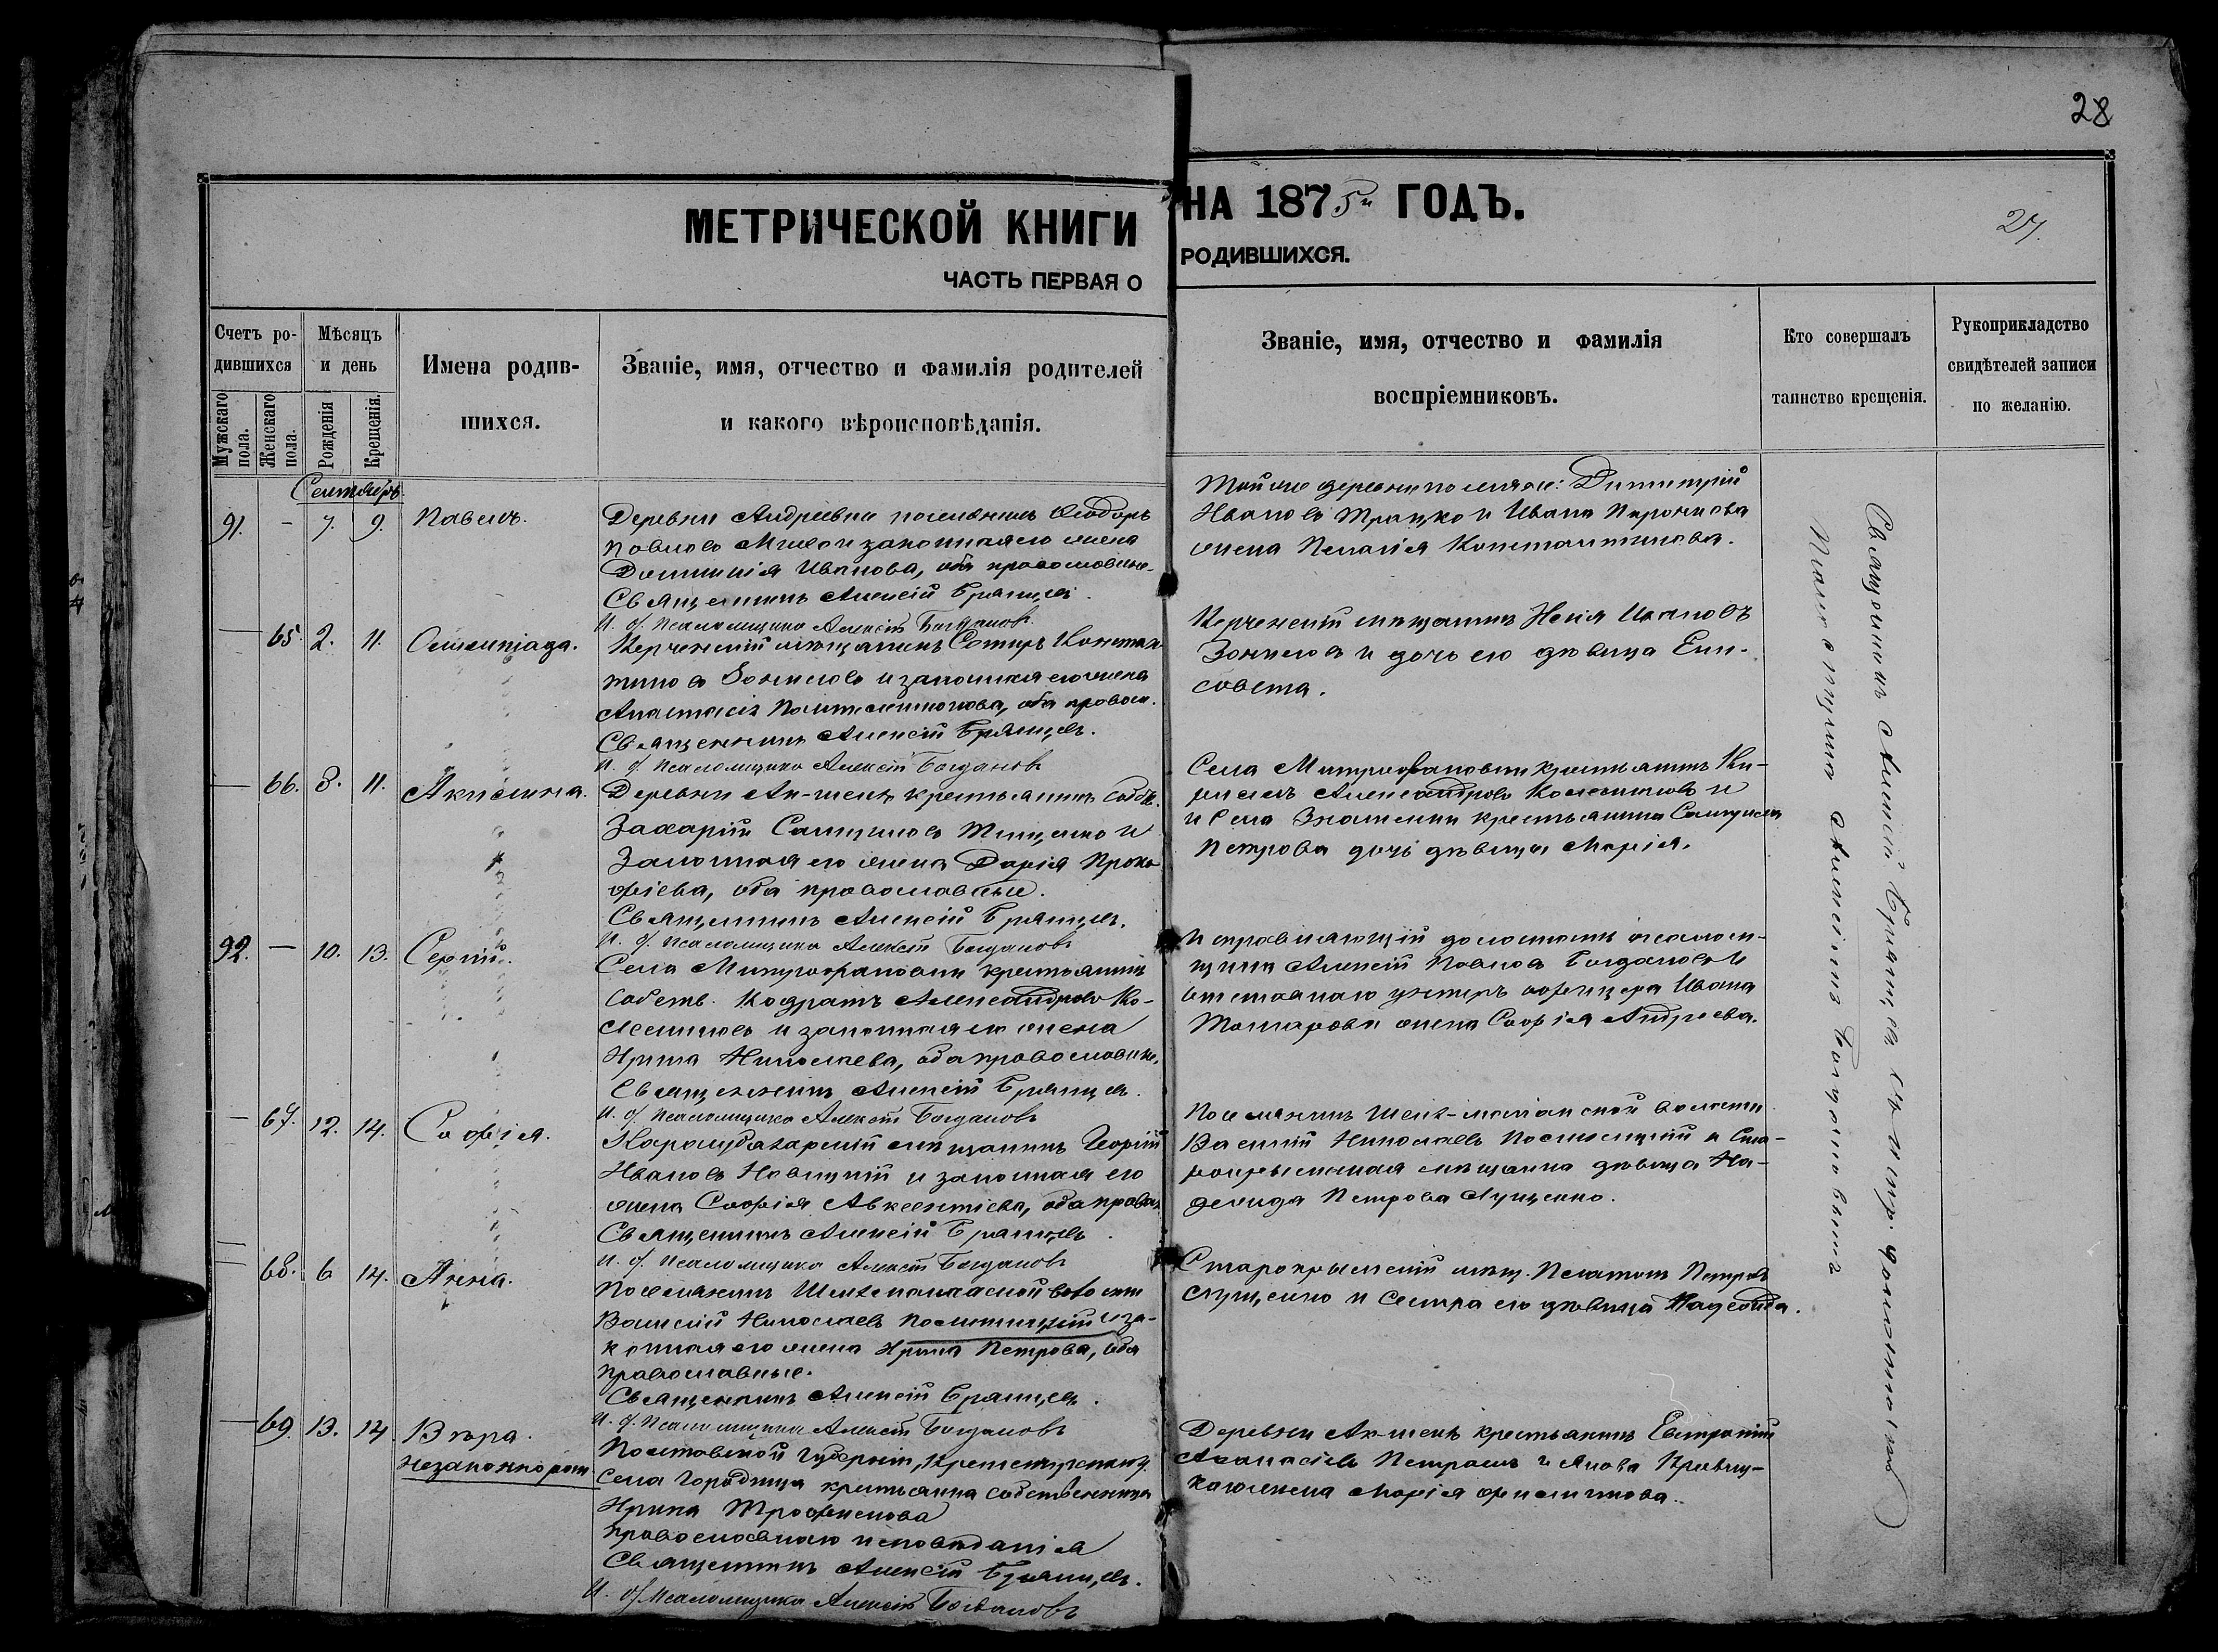 28
МЕТРИЧЕСКОЙ КНИГИ НА 1875й ГОДЪ.
27.
ЧАСТЬ ПЕРВАЯ О РОДИВШИХСЯ.
Счетъ ро-
дившихся
Мужскаго пола.
Женскаго пола.
Мѣсяцъ
и день
Рожденія
Крещенія.
Имена родив-
шихся.
Званіе, имя, отчество и фамилія родителей
и какого вѣроисповѣданія.
Званіе, имя, отчество и фамилія
воспріемниковъ.
Кто совершалъ
таинство крещенія.
Рукоприкладство
свидѣтелей записи
по желанію.
Сентябрь.
91. – 7. 9. Павелъ.
Деревни Андреевки поселянинъ Ѳеодоръ
Павловъ и законная его жена
Домникія Иванова, оба православные.
Священникъ Алексій Брянцевъ.
И. д. Псаломщика Алексѣй Богдановъ
Той же деревни поселяне: Димитрій
Ивановъ Трацко и Ивана
жена Пелагія Константинова.
— 65. 2. 11. Олимпіада.
Керченскій мѣщанинъ Сотиръ Констан-
тиновъ и законная его жена
Анастасія Пантелеимонова, оба правосл.
Священникъ Алексій Брянцевъ.
И. д. Псаломщика Алексѣй Богдановъ
Керченскій мѣщанинъ Илія Ивановъ
и дочь его дѣвица Ели-
совета.
— 66. 8. 11. Акилина.
Деревни Ак-шеихъ крестьянинъ собств.
Захарій Самуиловъ Тищенко и
Законная его жена Дарія Проко-
фіева, оба православные.
Священникъ Алексій Брянцевъ.
И. д. Псаломщика Алексѣй Богдановъ
Села Митрофановки крестьянинъ Ки-
риллъ Александровъ Колесниковъ и
и Села Знаменки крестьянина Самуила
Петрова дочь дѣвица Марія.
92. — 10. 13. Сергій.
Села Митрофановки крестьянинъ
собств. Кодратъ Александровъ Ко-
лесниковъ и законная его жена
Ирина Николаева, оба православные.
Священникъ Алексій Брянцевъ.
И. д. Псаломщика Алексѣй Богдановъ
Исправляющій должность псалом-
щика Алексѣй Павловъ Богдановъ и
отставнаго унтеръ офицера Ивана
жена Софія Андреева.
— 67. 12. 14. Софія.
Карасубазарскій мѣщанинъ Георгій
Ивановъ Новицкій и законная его
жена Софія Авксентіева, оба правос.
Священникъ Алексій Брянцевъ.
И. д. Псаломщика Алексѣй Богдановъ
Поселянинъ Шеих-моналской волости
Василій Николаевъ и Ста-
рокрымская мѣщанка дѣвица На-
дежда Петрова Луценко.
— 68. 6 14. Анна.
Поселянинъ волости
Василій Николаевъ и за-
конная его жена Ирина Петрова, оба
православные.
Священникъ Алексій Брянцевъ.
И. д. Псаломщика Алексѣй Богдановъ
Старокрымскій мѣщ. Платонъ Петровъ
Луценко и Сестра его дѣвица Надежда.
— 69. 13. 14. Вѣра.
незаконнорож.
Полтавской Губерніи, Кременчугскаго у.
Села Городища крестьянка собственница
Ирина Трофимова
православнаго исповѣданія
Священникъ Алексій Брянцевъ.
И. д. Псаломщика Алексѣй Богдановъ
Деревни Ак-шеихъ крестьянинъ Евтропій
Аѳанасіевъ и Якова
жена Марія Филиппова.
Священникъ Алексій Брянцевъ съ и. д.
Псаломщика Алексѣемъ Богдановымъ